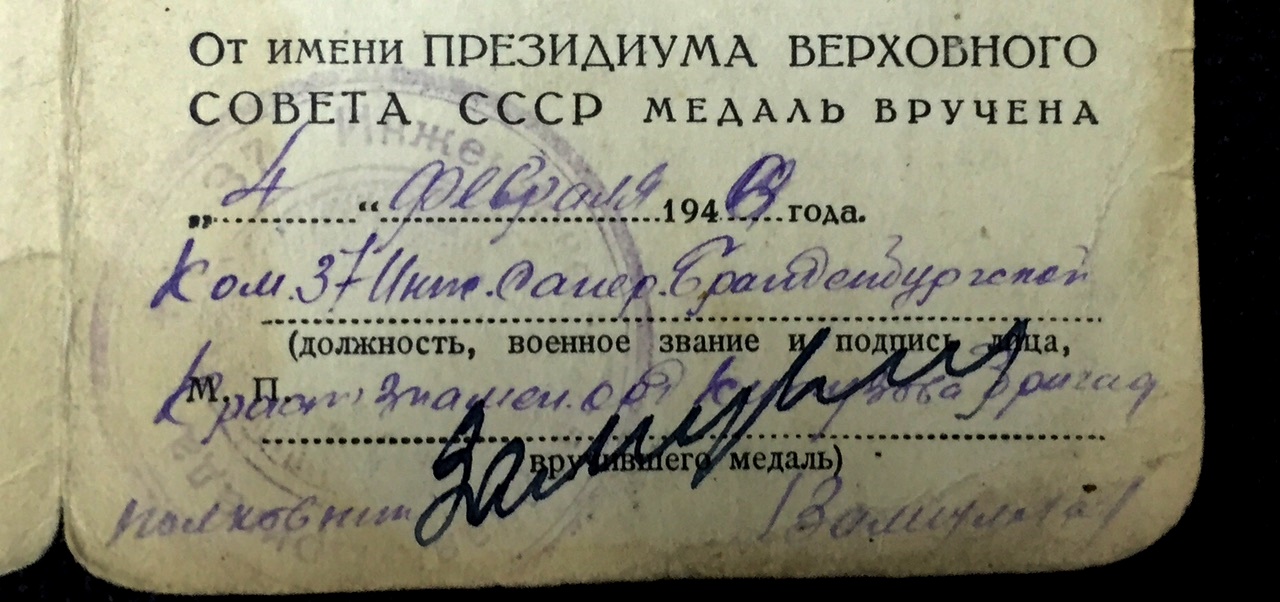 От имени ПРЕЗИДИУМА ВЕРХОВНОГО
СОВЕТА СССР МЕДАЛЬ ВРУЧЕНА
„4“ февраля 194 года.
Ком. 37 Инж. Сапер. Бранденбургской
(должность, военное звание и подпись лица,
М. П. Красн знамен. орд Кутузова Бригад
вручившего медаль)
полковник
37 Инже